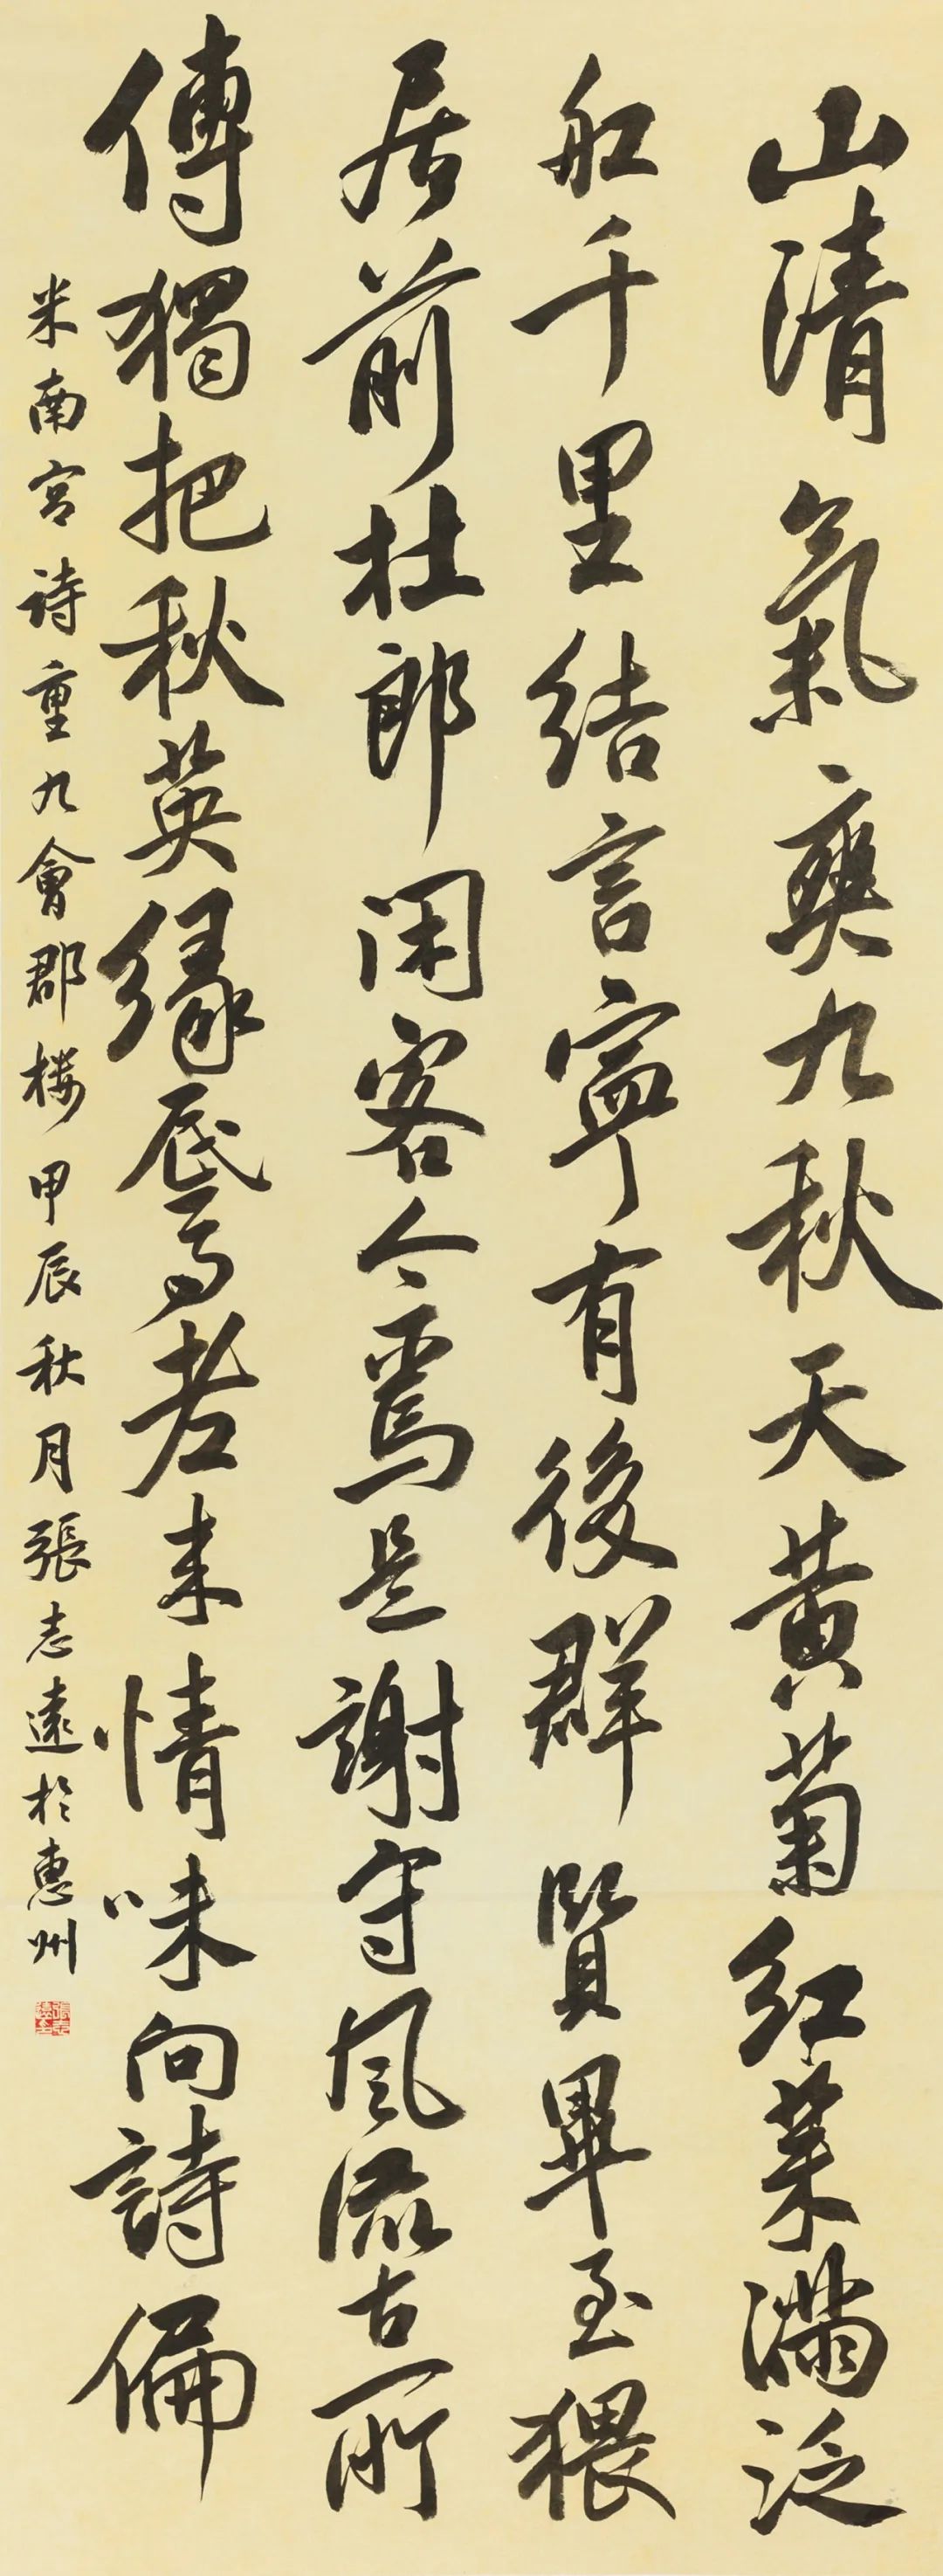 山清氣爽九秋天黃菊紅茱滿泛
舡千里結言寧有後群賢畢至猥
居前杜郎閑客今焉是謝守風流古所
傳獨把秋英緣底事老来情味向詩偏
米南宮詩重九會郡樓甲辰秋月張志遠於惠州